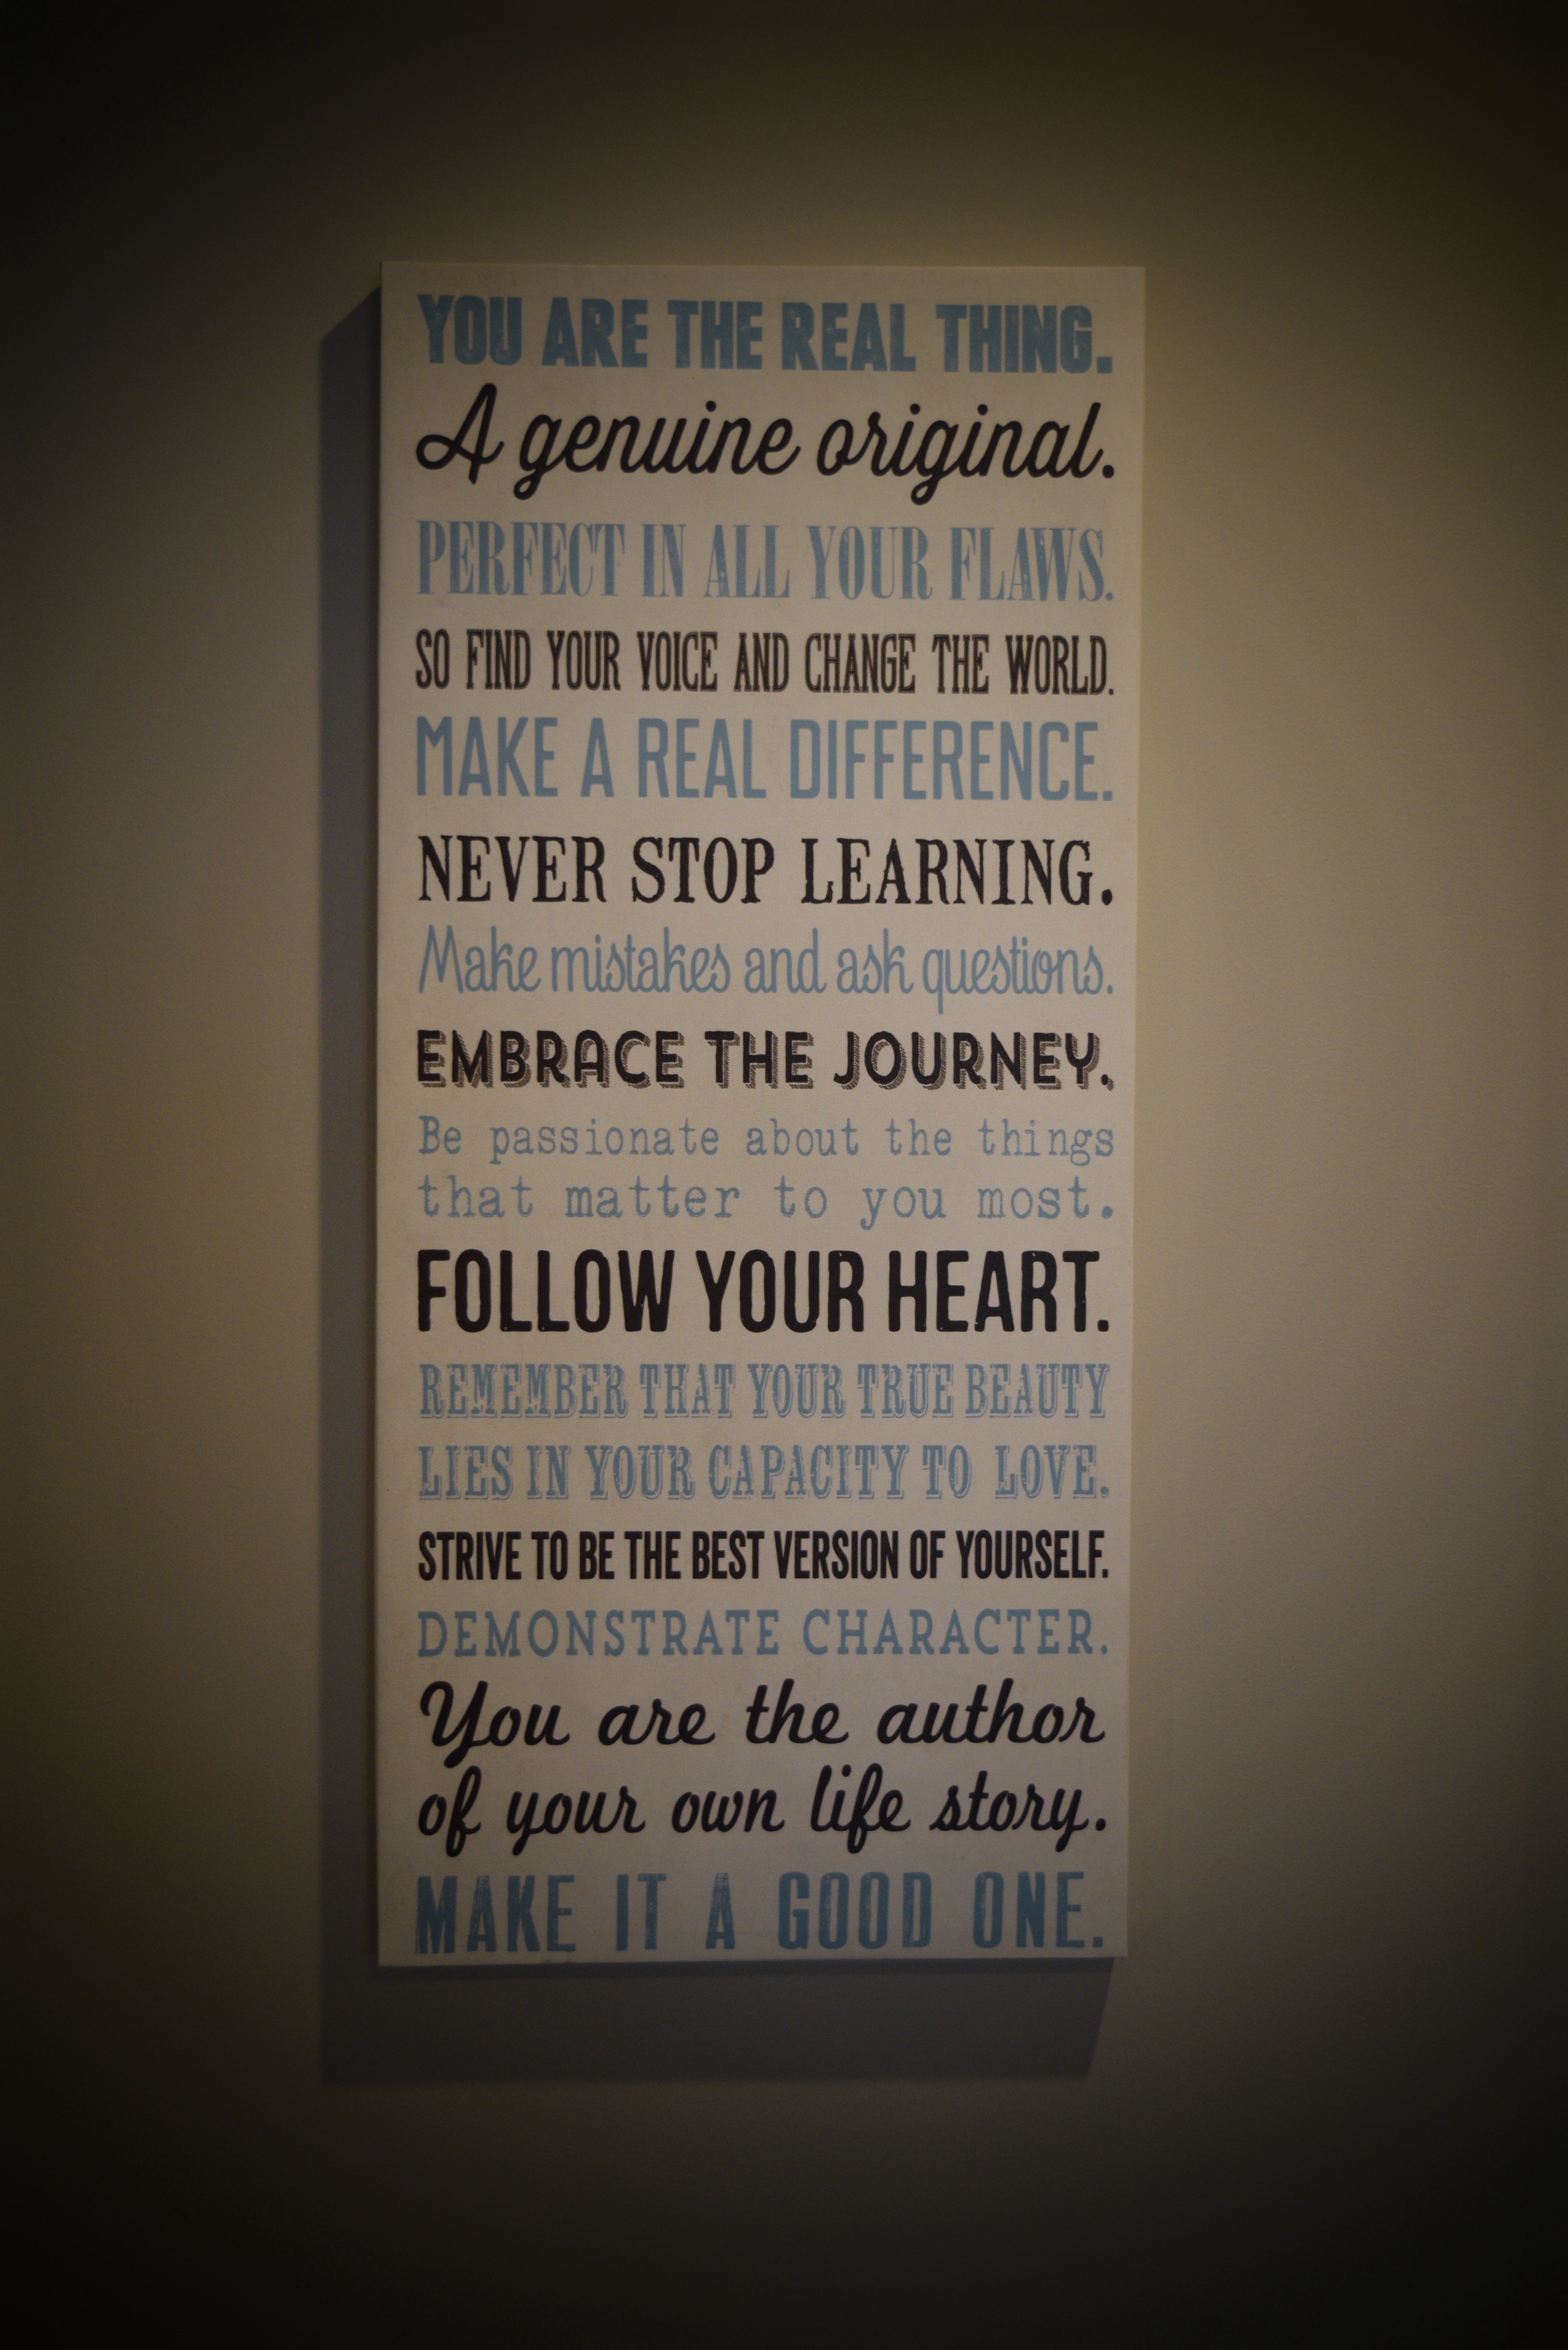 YOU ARE THE REAL THING.
A genuine original.
PERFECT IN ALL YOUR FLAWS.
SO FIND YOUR VOICE AND CHANGE THE WORLD.
MAKE A REAL DIFFERENCE.
NEVER STOP LEARNING.
Make mistakes and ask questions.
EMBRACE THE JOURNEY.
Be passionate about the things
that matter to you most.
FOLLOW YOUR HEART.
REMEMBER THAT YOUR TRUE BEAUTY
LIES IN YOUR CAPACITY TO LOVE.
STRIVE TO BE THE BEST VERSION OF YOURSELF.
DEMONSTRATE CHARACTER.
You are the author
of your own life story.
MAKE IT A GOOD ONE.